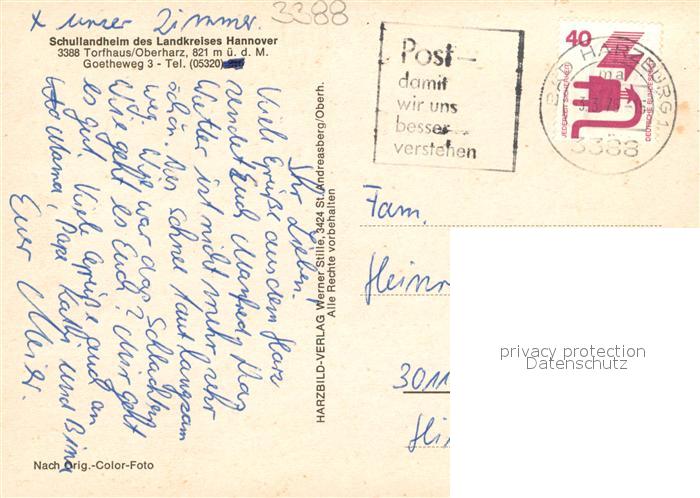 x unser Zimmer.
3388
Schullandheim des Landkreises Hannover
3388 Torfhaus/Oberharz, 821 m ü. d. M.
Goetheweg 3 - Tel. (05320)
Ihr Lieben,
Viele Grüße aus dem Harz
sendet Euch Manfred. Das
Wetter ist nicht mehr sehr
schön. Der Schnee taut langsam
weg. Wie war das Schlachten
Wie geht es Euch? Mir geht
es gut. Viele Grüße auch an
Mama, Papa, Kathi und
Euer
Nach Orig.-Color-Foto
HARZBILD-VERLAG Werner Stille, 3424 St. Andreasberg/Oberh.
Alle Rechte vorbehalten
Post-
damit
wir uns
besser
verstehen
40
JEDERZEIT SICHERHEIT
DEUTSCHE BUNDESPOST
HARZBURG 1
ma
3388
Fam.
Heinr
3011
privacy protection
Datenschutz